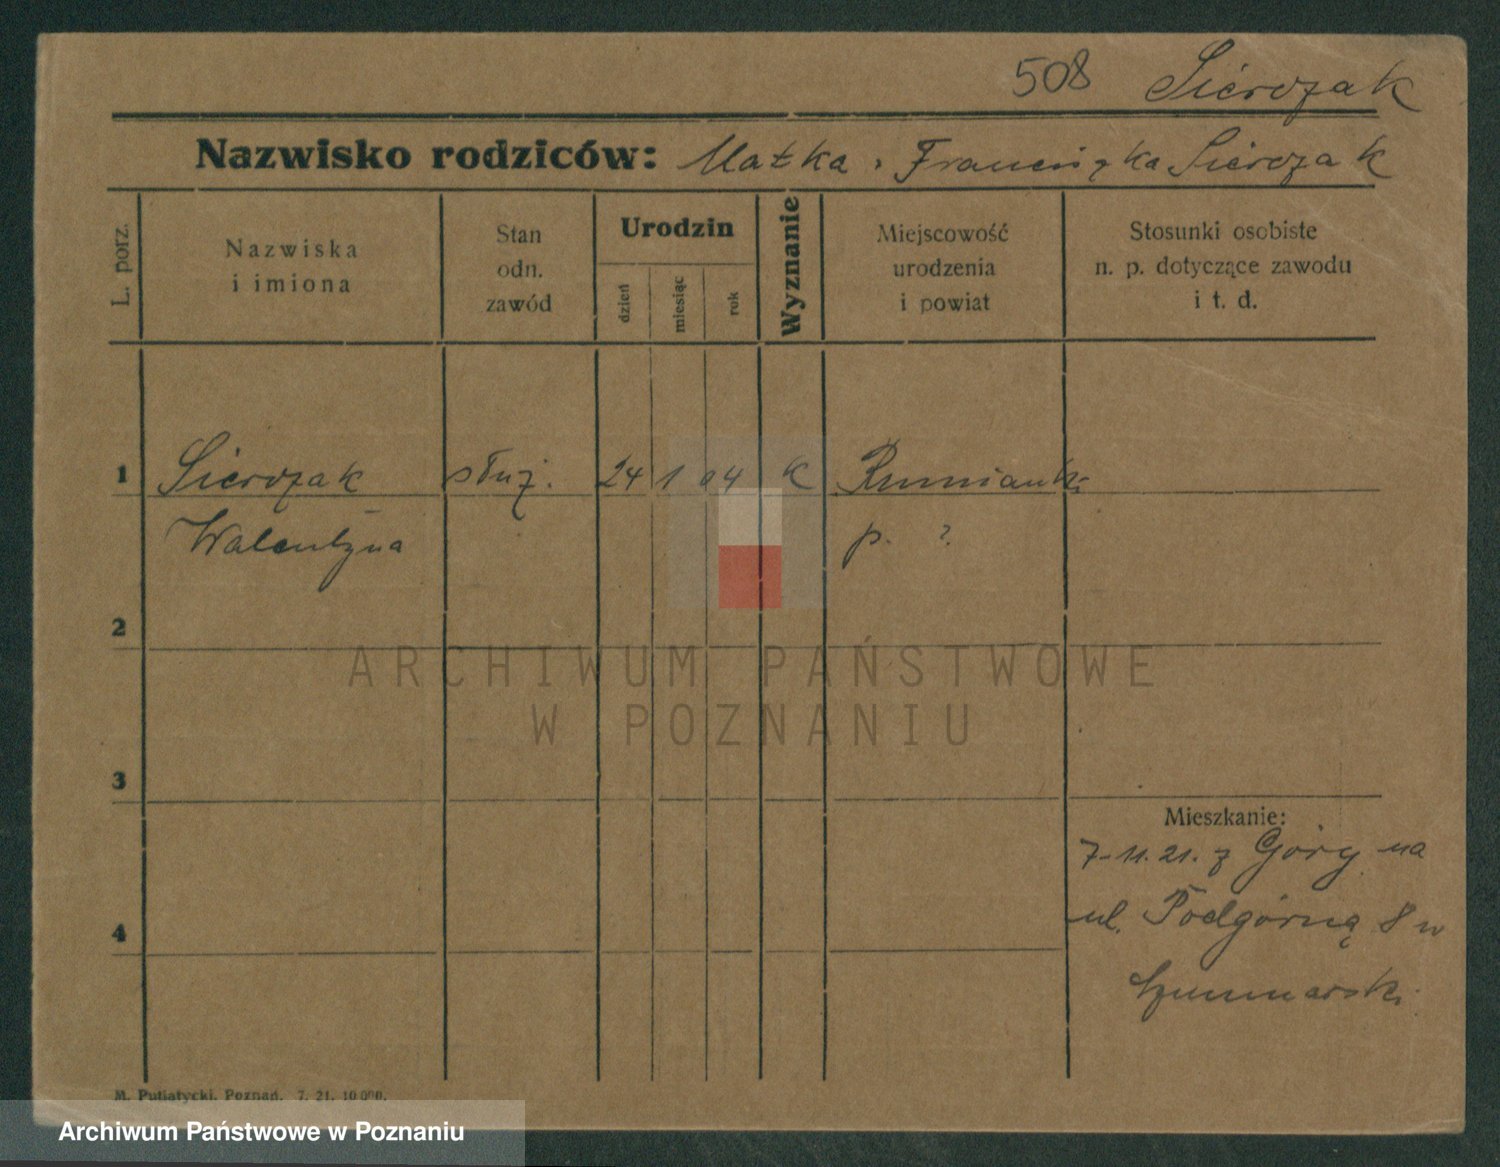 508 Sierczak
Nazwisko rodziców: Matka, Franciszka Sierczak
L. porz.
Nazwiska
i imiona
Stan
odn.
zawód
Urodzin
dzień
miesiąc
rok
Wyznanie
Miejscowość
urodzenia
i powiat
Stosunki osobiste
n. p. dotyczące zawodu
i t. d.
1 Sierczak służ. 24 1 04 k Rumianki
Walentyna p. ?
2
3
4
Mieszkanie:
7-11.21. z Góry na
ul. Podgórną 8 w
M. Putiatycki, Poznań. 7. 21. 10 000.
ARCHIWUM PAŃSTWOWE
W POZNANIU
Archiwum Państwowe w Poznaniu